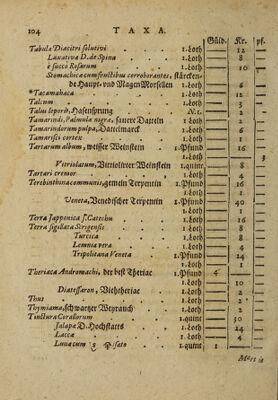 104 TAXA.
Güld. Kr. pf.
Tabulæ Diacitri solutivi 1. Loth — 12 —
Laxativa D. de Spina 1. Loth — 8 —
è succo Rosarum 1. Loth — 10 —
Stomachicæ cum fructibus corroborantes, stärcken-
de Haupt- und Magen Morsellen 1. Loth — 6 —
*Tacamahaca 1. Loth — 12 —
Talcum 1. Loth — 3 —
Talus leporis, Hasensprung N. 1. — 2 —
Tamarindi, Palmula nigra, saure Datteln 1. Loth — 2 —
Tamarindorum pulpa, Dattelmarck 1. Loth — 6 —
Tamarisci cortex 1. Loth — 2 —
Tartarum album, weisser Weinstein 1. Pfund — 16 —
1. Loth — 1 —
Vitriolatum, Vitriolirter Weinstein 1. quint — 8 —
Tartari cremor 1. Loth — 4 —
Terebinthina communis, gemein Terpentin 1. Pfund — 16 —
1. Loth — 1 —
Veneta, Venedischer Terpentin 1. Pfund — 40 —
1. Loth
Terra Japponica s. Catechu 1. Loth — 16 —
Terra sigillata Strigensis 1. Loth — 2 —
Turcica 1. Loth — 8 —
Lemnia vera 1. Loth — 4 —
Tripolitana Veneta 1. Pfund — 24 —
1. Loth — 1 —
Theriaca Andromachi, der best Theriac 1. Pfund 4
1. Loth — 10 —
Diatessaron, Viehtheriac 1. Loth — 2 —
Thus 1. Loth
Thymiama, schwartzer Weyrauch 1. Loth — 2 —
Tinctura Corallorum 1. Loth — 30 —
Jalapæ D. Hochstatts 1. Loth — 24 —
Laccæ 1. Loth — 4 —
1. quint 1